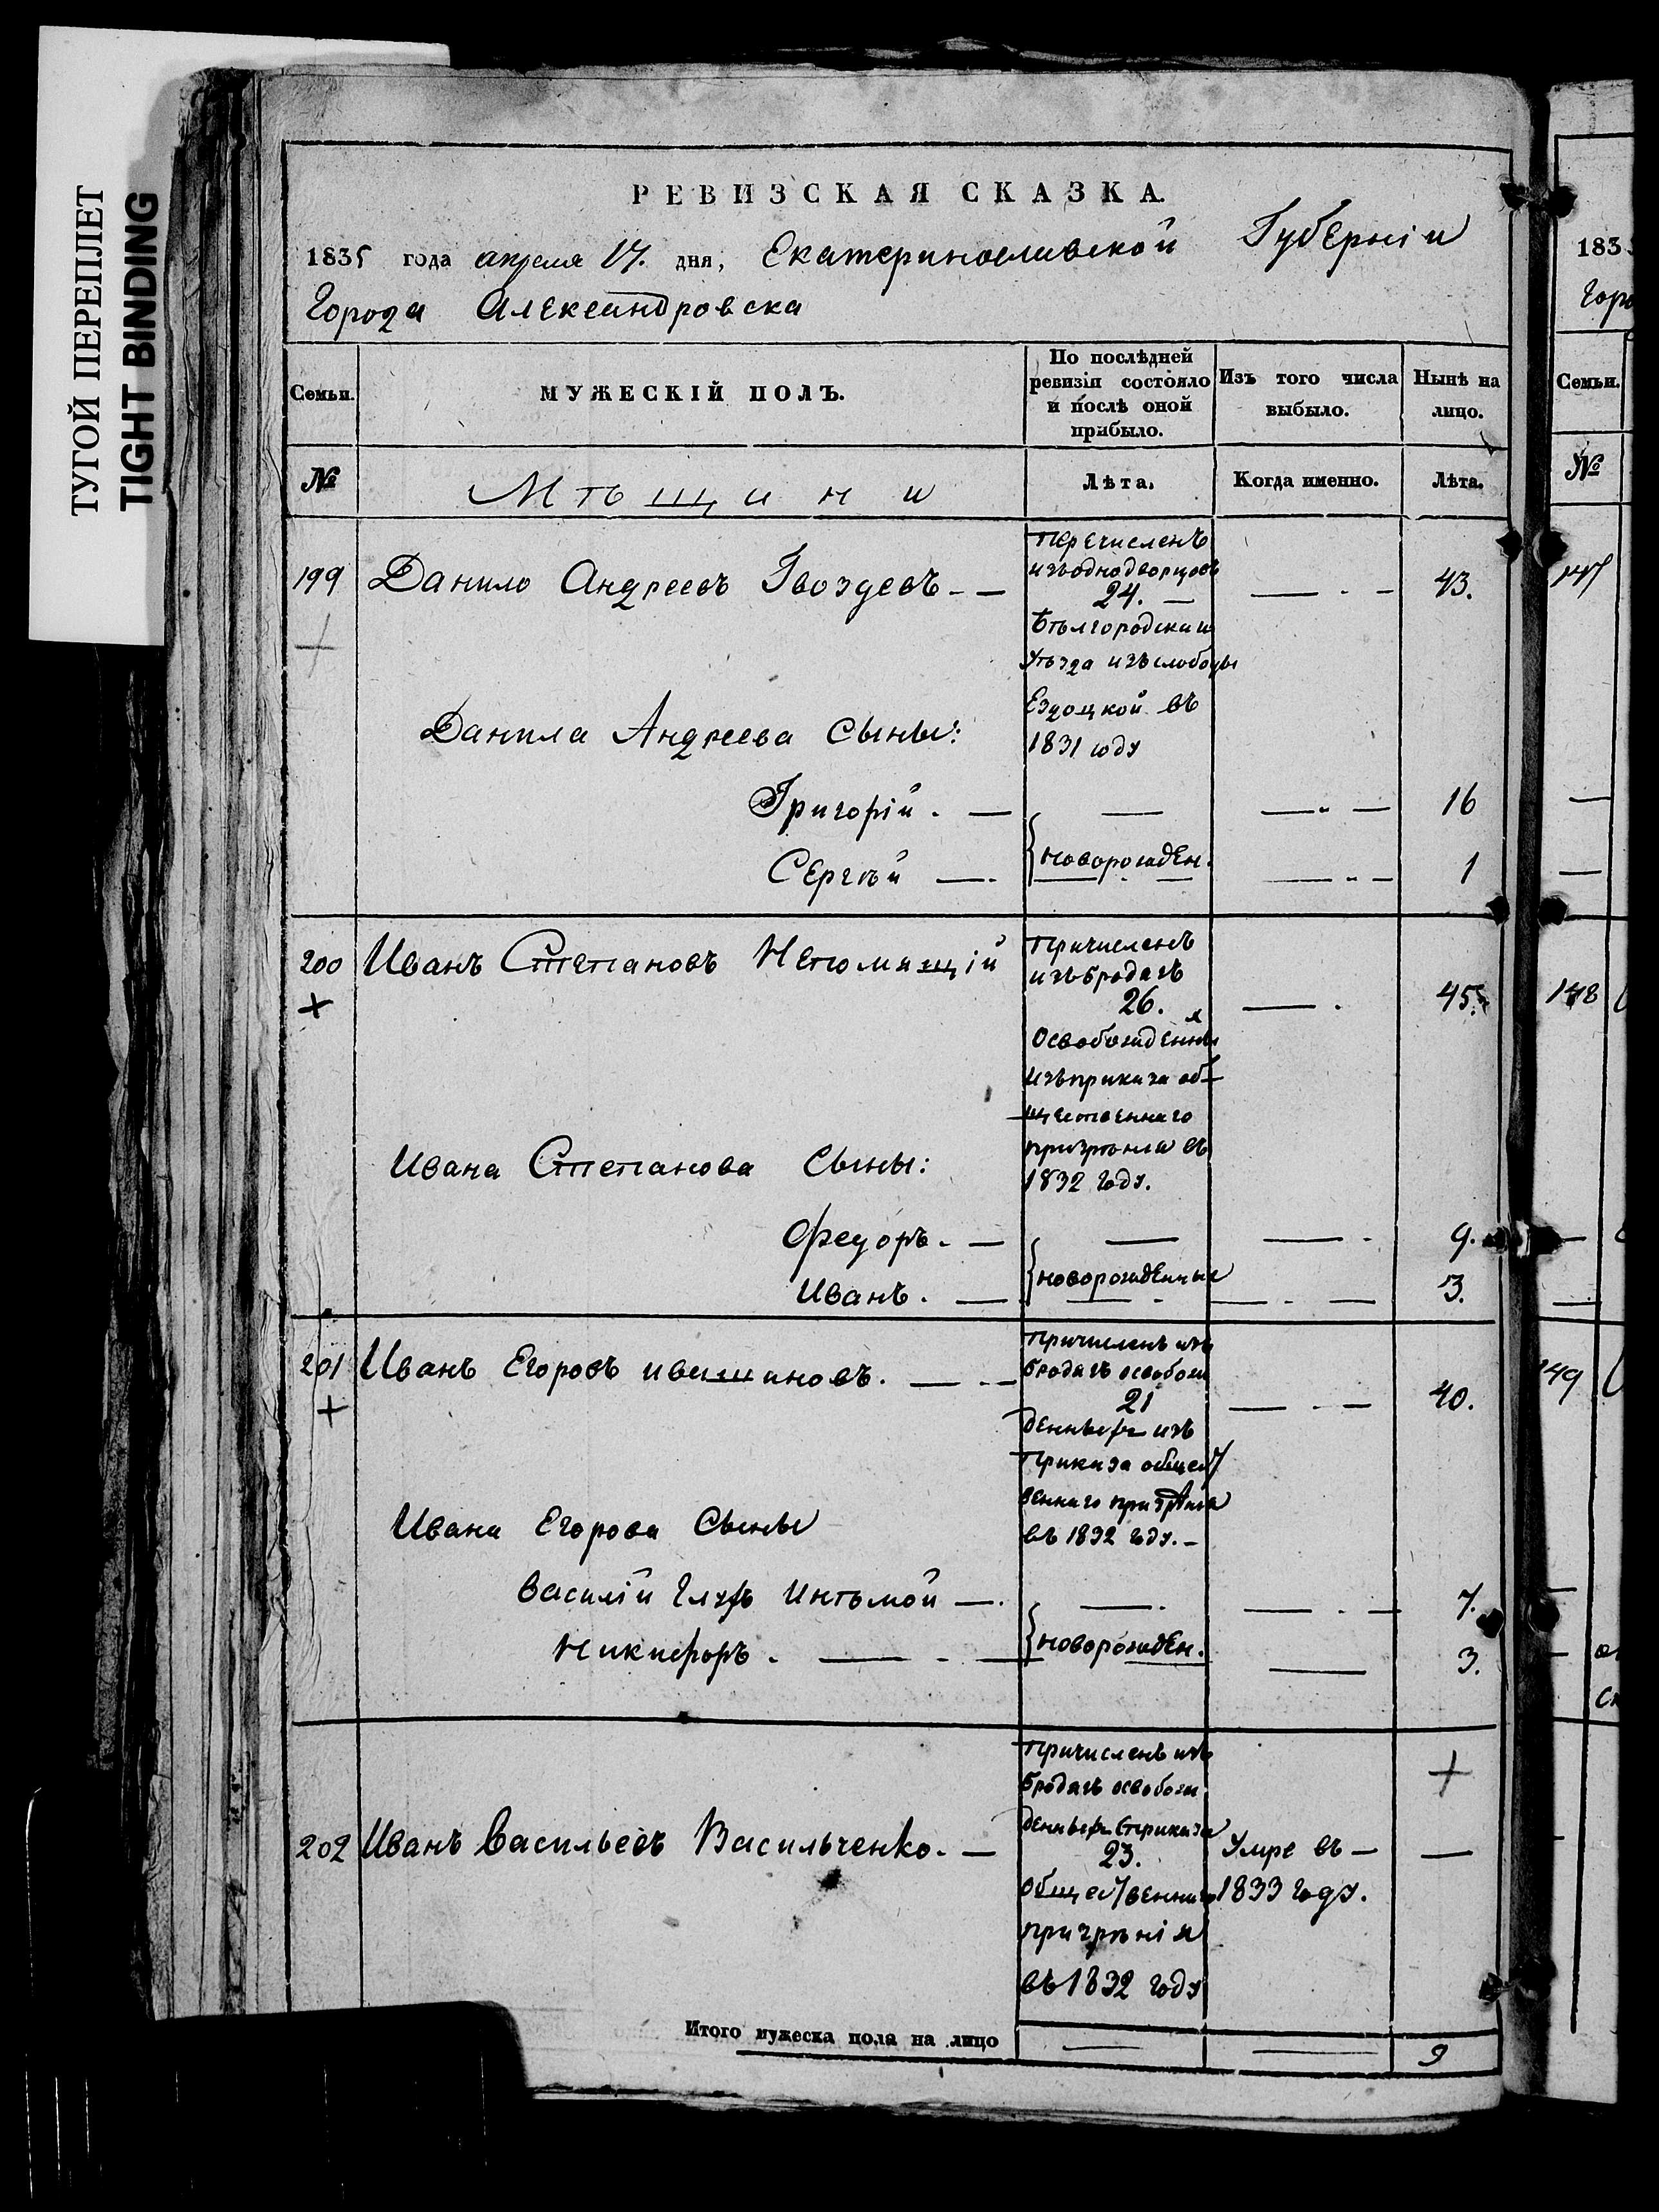 ТУГОЙ ПЕРЕПЛЕТ
TIGHT BINDING
РЕВИЗСКАЯ СКАЗКА.
1835 года апреля 17. дня, Екатеринославской Губернiи
Города Александровска
Семьи.
МУЖЕСКІЙ ПОЛЪ.
По послѣдней
ревизіи состояло
и послѣ оной
прибыло.
Изъ того числа
выбыло.
Нынѣ на
лицо.
№
Мѣщини
Лѣта.
Когда именно.
Лѣта.
199 Данило Андреевъ Гвоздевъ - —
перечисленъ
изъ однодворцовъ
24. —
43.
Бѣлгородскаи
уѣзда изъ слободы
Ездоцкой въ
1831 году
Данила Андреева сыны:
Григорій. — 16
Сергѣй — новорожден. 1
200 Иванъ Степановъ Непомящій
причисленъ
изъ бродягъ
26.
45.
изъ приказа об-
щественнаго
призрѣния въ
1832 году.
Ивана Степанова сыны:
Федоръ. — 9.
Иванъ. — новорожденные 3.
201 Иванъ Егоровъ
причисленъ изъ
бродягъ освобож
21
40.
изъ
приказа общест
веннаго призрѣния
въ 1832 году. -
Ивана Егорова сыны
Василій глухъ инѣмой — 7.
Никифоръ. — новорожден. 3.
202 Иванъ Васильевъ Васильченко. —
причисленъ изъ
бродягъ освобож
23.
общественнаго
призрѣнія
въ 1832 году
Умре въ —
1833 году.
Итого мужеска пола на лицо
9
183
Семьи.
№
147
148
149